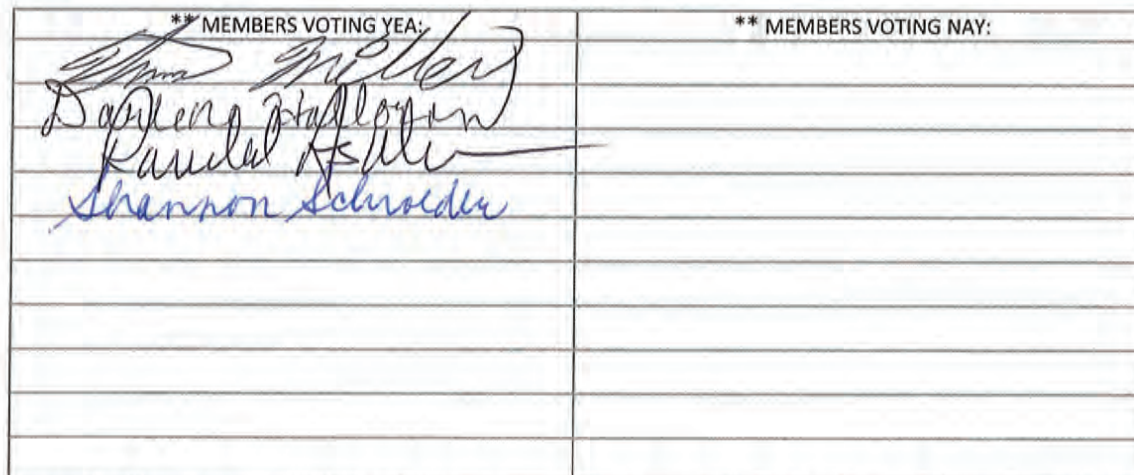 ** MEMBERS VOTING YEA:
** MEMBERS VOTING NAY:
Miller
Darlene Halloran
Randal
Shannon Schroeder